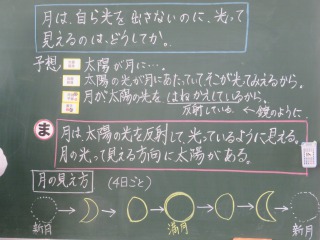 月は、自ら光を出さないのに、光って
見えるのは、どうしてか。
予想 太陽が月に…。
太陽の光が月にあたっていてそこが光てみえるから。
月が太陽の光をはねかえしているから。
反射している。 ←鏡のように
ま 月は太陽の光を反射して、光っているように見える。
月の光って見える方向に太陽がある。
月の見え方 (4日ごと)
新月 満月 新月